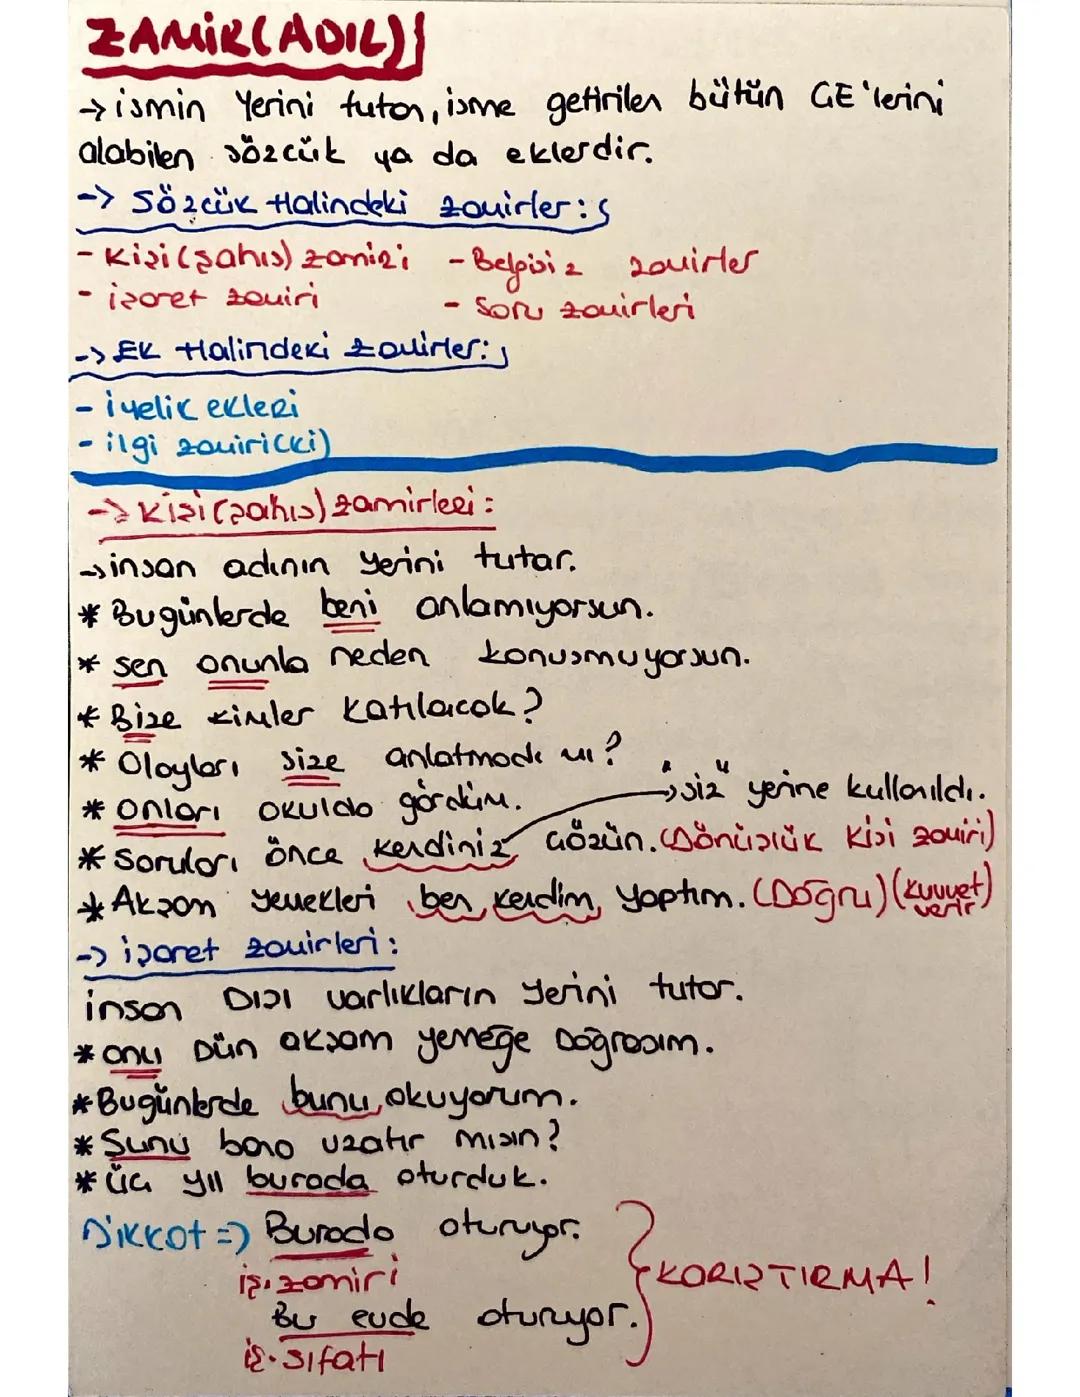 ZAMİR(ADIL)
→ ismin Yerini tutan, isme getirilen bütün ÇE'lerini
alabilen sözcük ya da eklerdir.
-> Sözcük Halindeki zamirler:
- Kişi(şahıs) zamiri - Belgisiz zamirler
- işaret zamiri - Soru zamirleri
-> EK Halindeki zamirler:
- iyelik ekleri
- ilgi zamiri(ki)
-> Kişi(şahıs) zamirleri:
→ insan adının Yerini tutar.
* Bugünlerde beni anlamıyorsun.
* sen onunla neden konuşmuyorsun.
* Bize kimler katılacak?
* Olayları size anlatmadı mı?
* onları okulda gördüm. → "siz" yerine kullanıldı.
* Soruları önce kendiniz çözün. (Dönüşlük kişi zamiri)
* Akşam yemekleri ben kendim yaptım. (Doğru) (kuvvet verir)
-> işaret zamirleri:
insan Dışı varlıkların Yerini tutar.
* onu Dün akşam yemeğe Doğradım.
* Bugünlerde bunu okuyorum.
* Şunu bana uzatır mısın?
* üç yıl burada oturduk.
Dikkat => Burada oturuyor.
iş. zamiri
Bu evde oturuyor.
iş. sıfatı
KARIŞTIRMA!